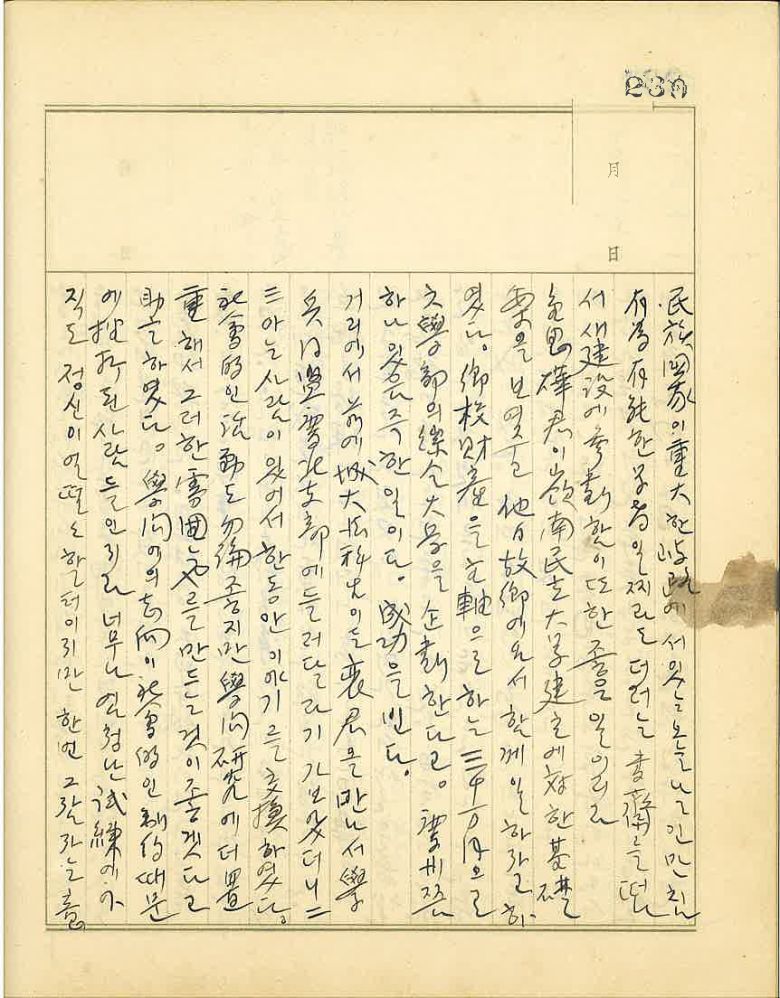 230
月 日
民族國家의 重大한 岐路에 서 있는 오늘날인 만치
有爲有能한 学者일찌라도 더러는 書齋를 떠나
서 새 建設에 參劃함이 또한 좋은 일이리라
君이 嶺南民立大学建立에 対한 基礎
案을 보여주 他日 故鄕에 와서 함께 일하라고 하
였다。鄕校財產을 主軸으로 하는 三千万円으로
大學部의 綜合大学을 企劃한다고。
하나 있음즉한 일이다。成功을 빈다。
거리에서 前에 城大 法科 先生이든 裵君을 만나서 學
兵同盟 慶北支部에 들러달라기 가보았더니 二
三 아는 사람이 있어서 한동안 이야기를 交換하였다。
社會的인 活動도 勿論 좋지만 學問硏究에 더 置
重해서 그러한 雰囲気를 만드는 것이 좋겠다고
助言하였다。學问에의 志向이 社會的인 制約 때문
에 挫折된 사람들인지라 너무나 엄청난 試練에 아
직도 정신이 얼떨도 할 터이지만 한번 그 갈라는